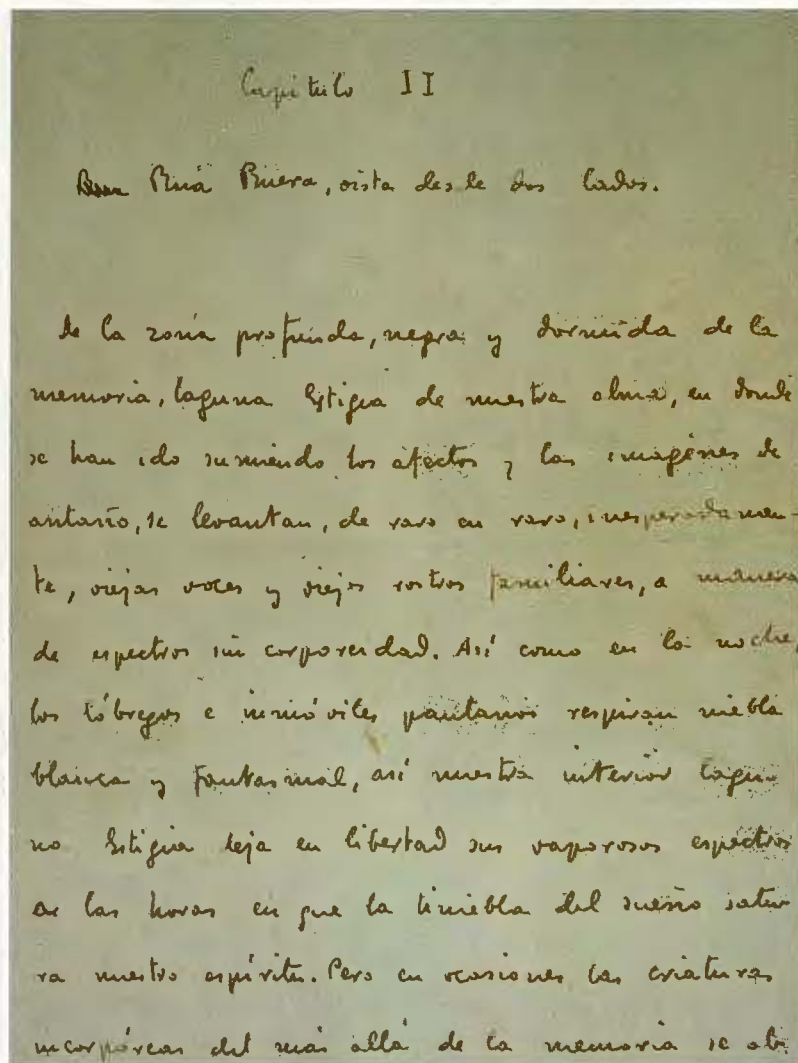 Capitulo II
Rúa Ruera, vista desde dos lados.
De la zona profunda, negra y dormida de la
memoria, laguna Estigia de nuestra alma, en donde
se han ido sumiendo los afectos y las imagénes de
antaño, se levantan, de raro en raro, inesperadamen-
te, viejas voces y viejos rostros familiares, a manera
de espectros sin corporeidad. Así como en la noche,
los lóbregos e inmóviles pantanos respiran niebla
blanca y fantasmal, así nuestra interior lagu-
na Estigia deja en libertad sus vaporosos espectros
a las horas en que la tiniebla del sueño satu-
ra nuestro espíritu. Pero en ocasiones las criaturas
incorpóreas del más allá de la memoria se abi